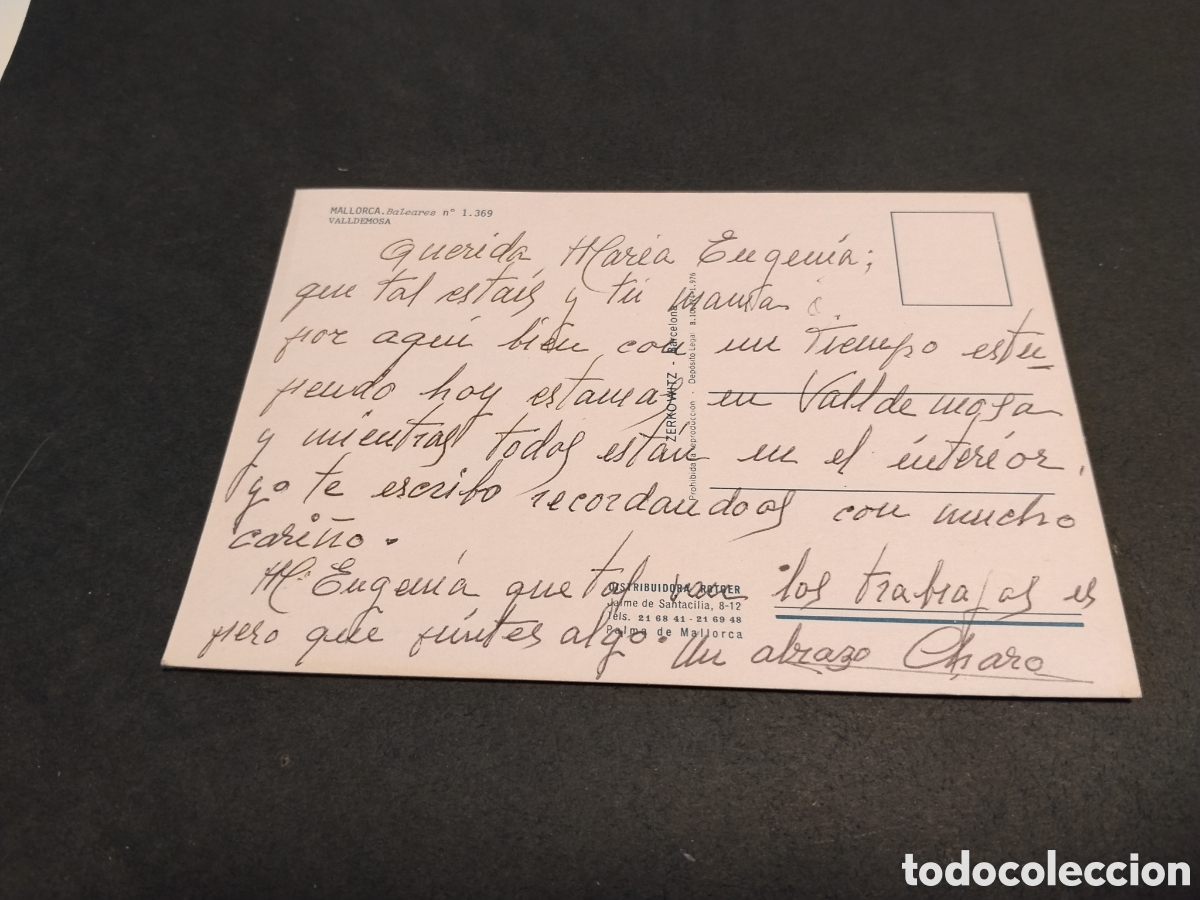 MALLORCA. Baleares n° 1.369
VALLDEMOSA
Querida Maria Eugenia;
que tal estais y tu mama
por aqui bien con un tiempo estu
pendo hoy estamos en Valldemosa
y mientras todos estan en el interior,
yo te escribo recordandoos con mucho
cariño.
Mª Eugenia que tal van los trabajos es
pero que juntes algo. Un abrazo Charo
ZERKOWITZ - Barcelona
Prohibida la reproducción - Depósito Legal B.
DISTRIBUIDORA ROTGER
Jaime de Santacilia, 8-12
Tels. 21 68 41 - 21 69 48
Palma de Mallorca
todocoleccion